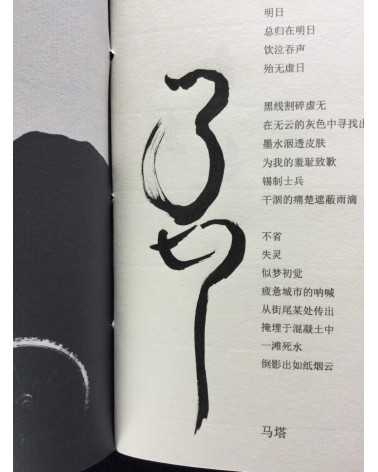 明日
总归在明日
饮泣吞声
殆无虚日
黑线割碎虚无
在无云的灰色中寻找出
墨水洇透皮肤
为我的羞耻致歉
锡制士兵
干涸的痛楚遮蔽雨滴
不省
失灵
似梦初觉
疲惫城市的呐喊
从街尾某处传出
掩埋于混凝土中
一滩死水
倒影出如纸烟云
马塔